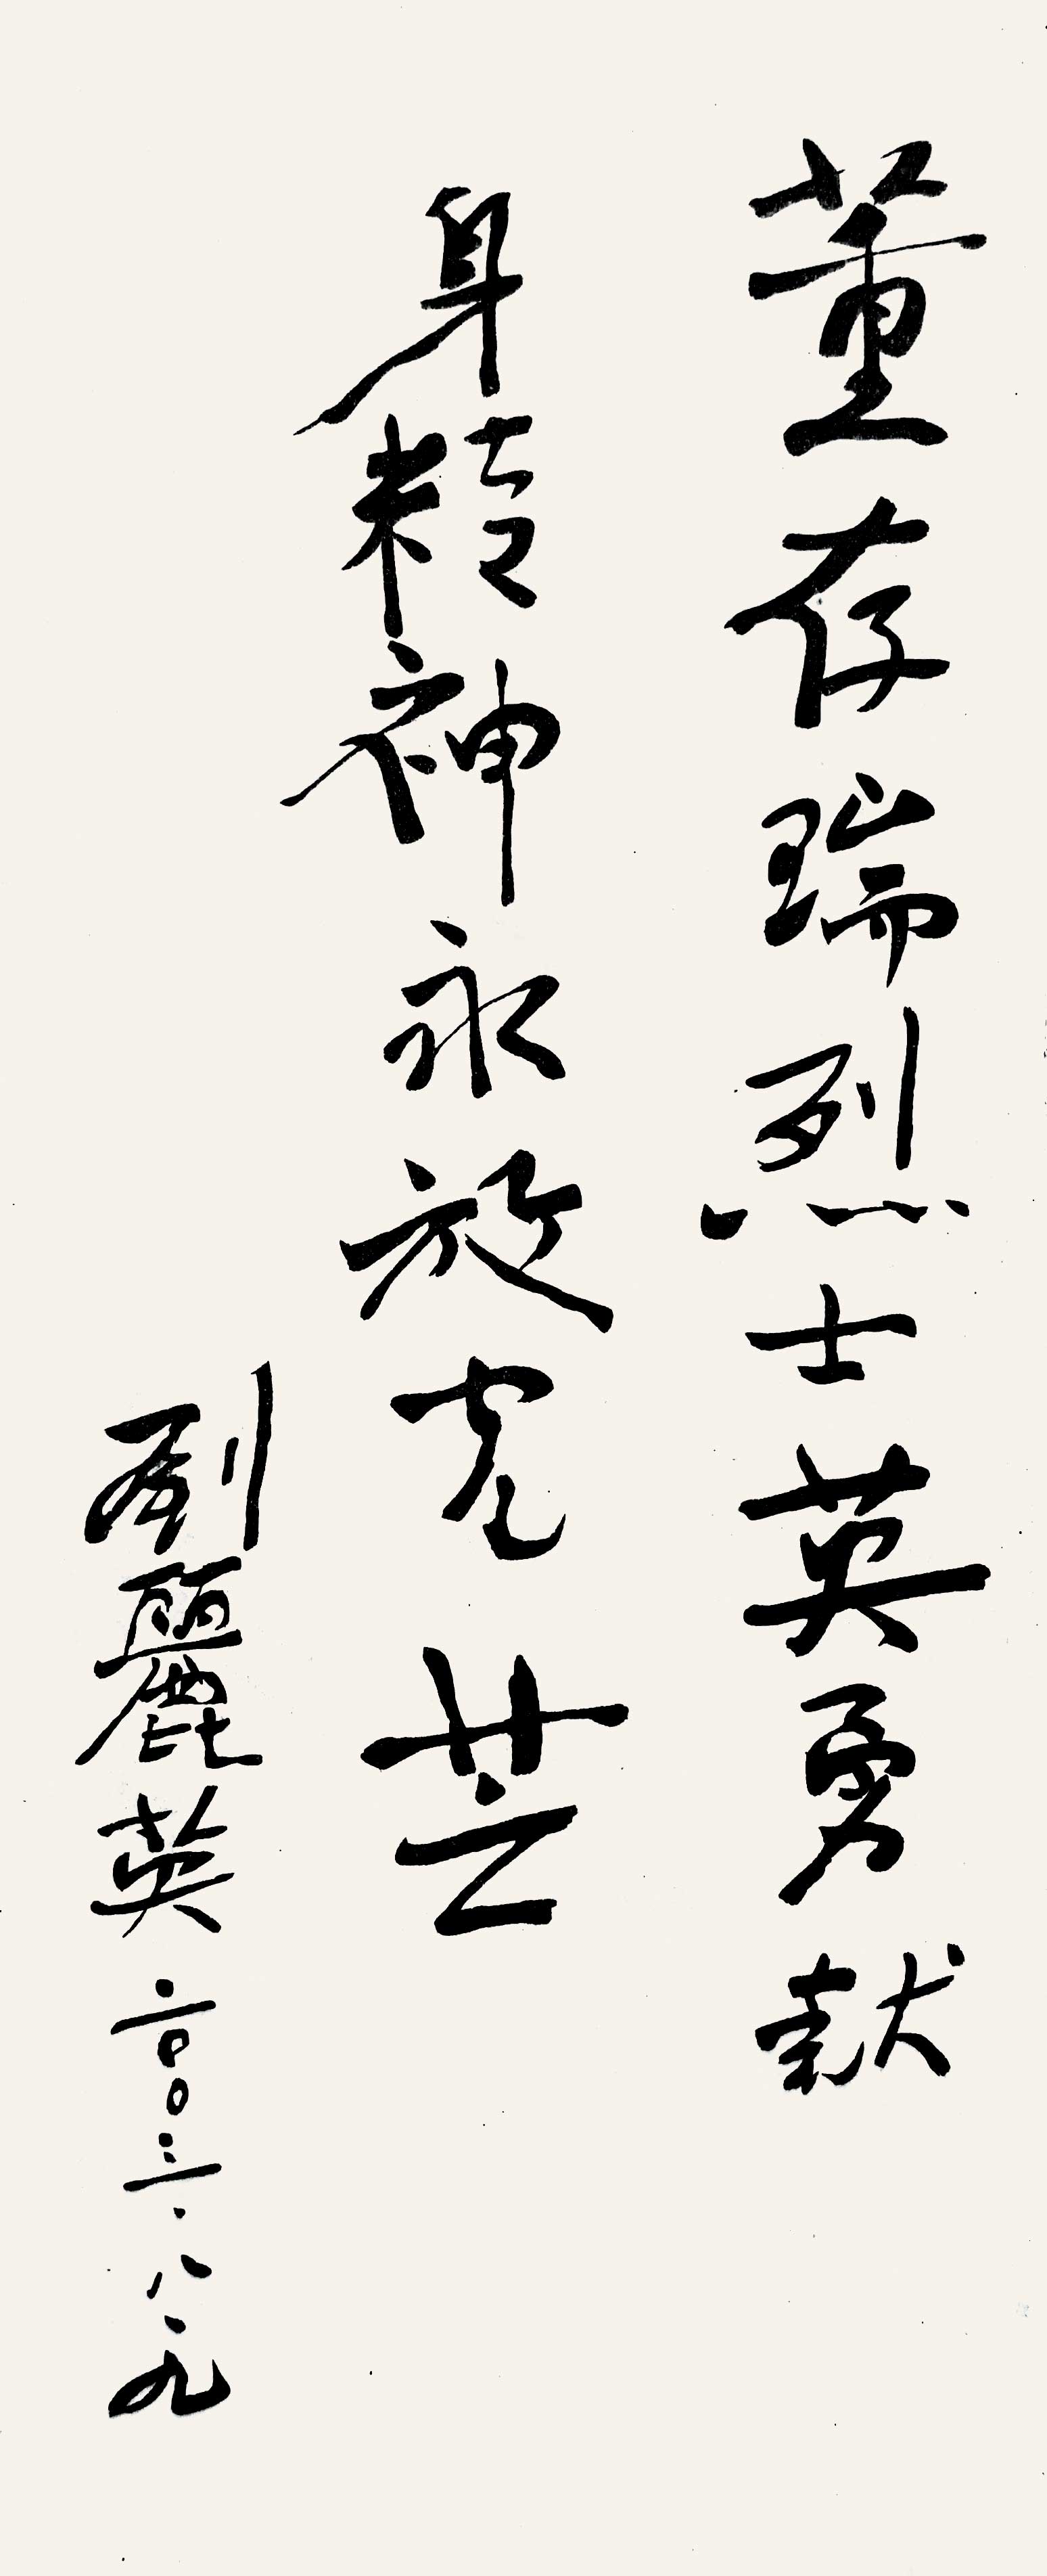 董存瑞烈士英勇献
身精神永放光芒
刘麗英 二〇〇三·八·九